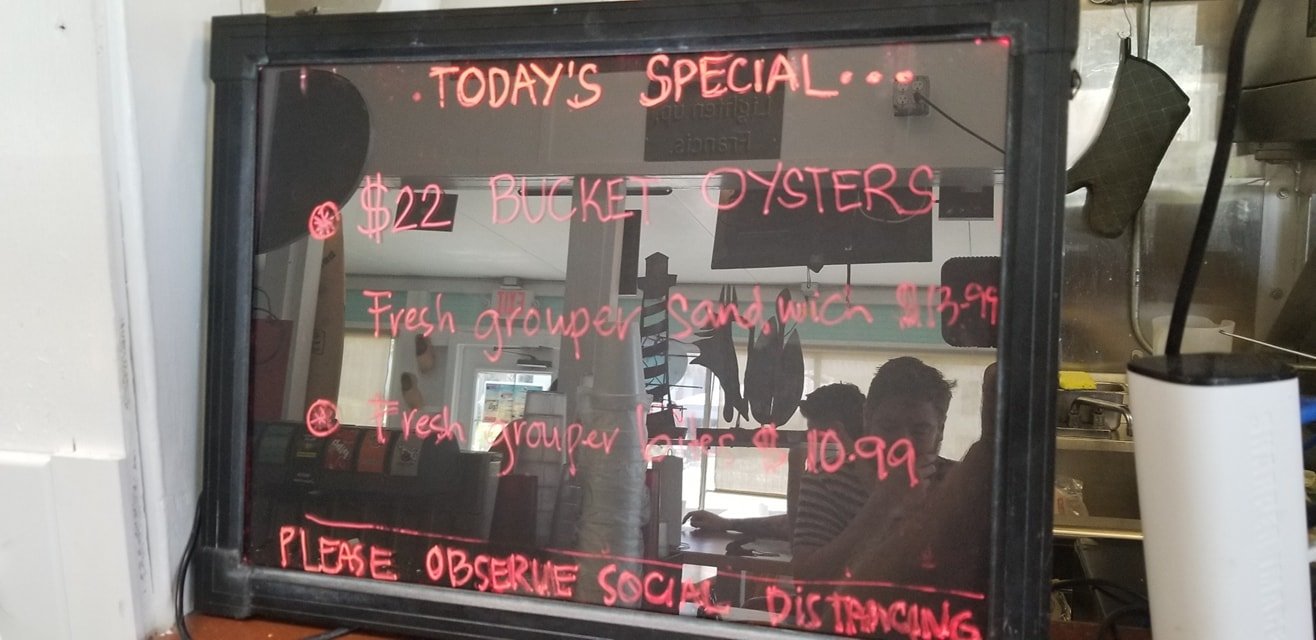 .TODAY'S SPECIAL...
$22 BUCKET OYSTERS
Fresh grouper Sandwich $13.99
Fresh grouper bites $10.99
PLEASE OBSERVE SOCIAL DISTANCING
Lighten up,
Francis.